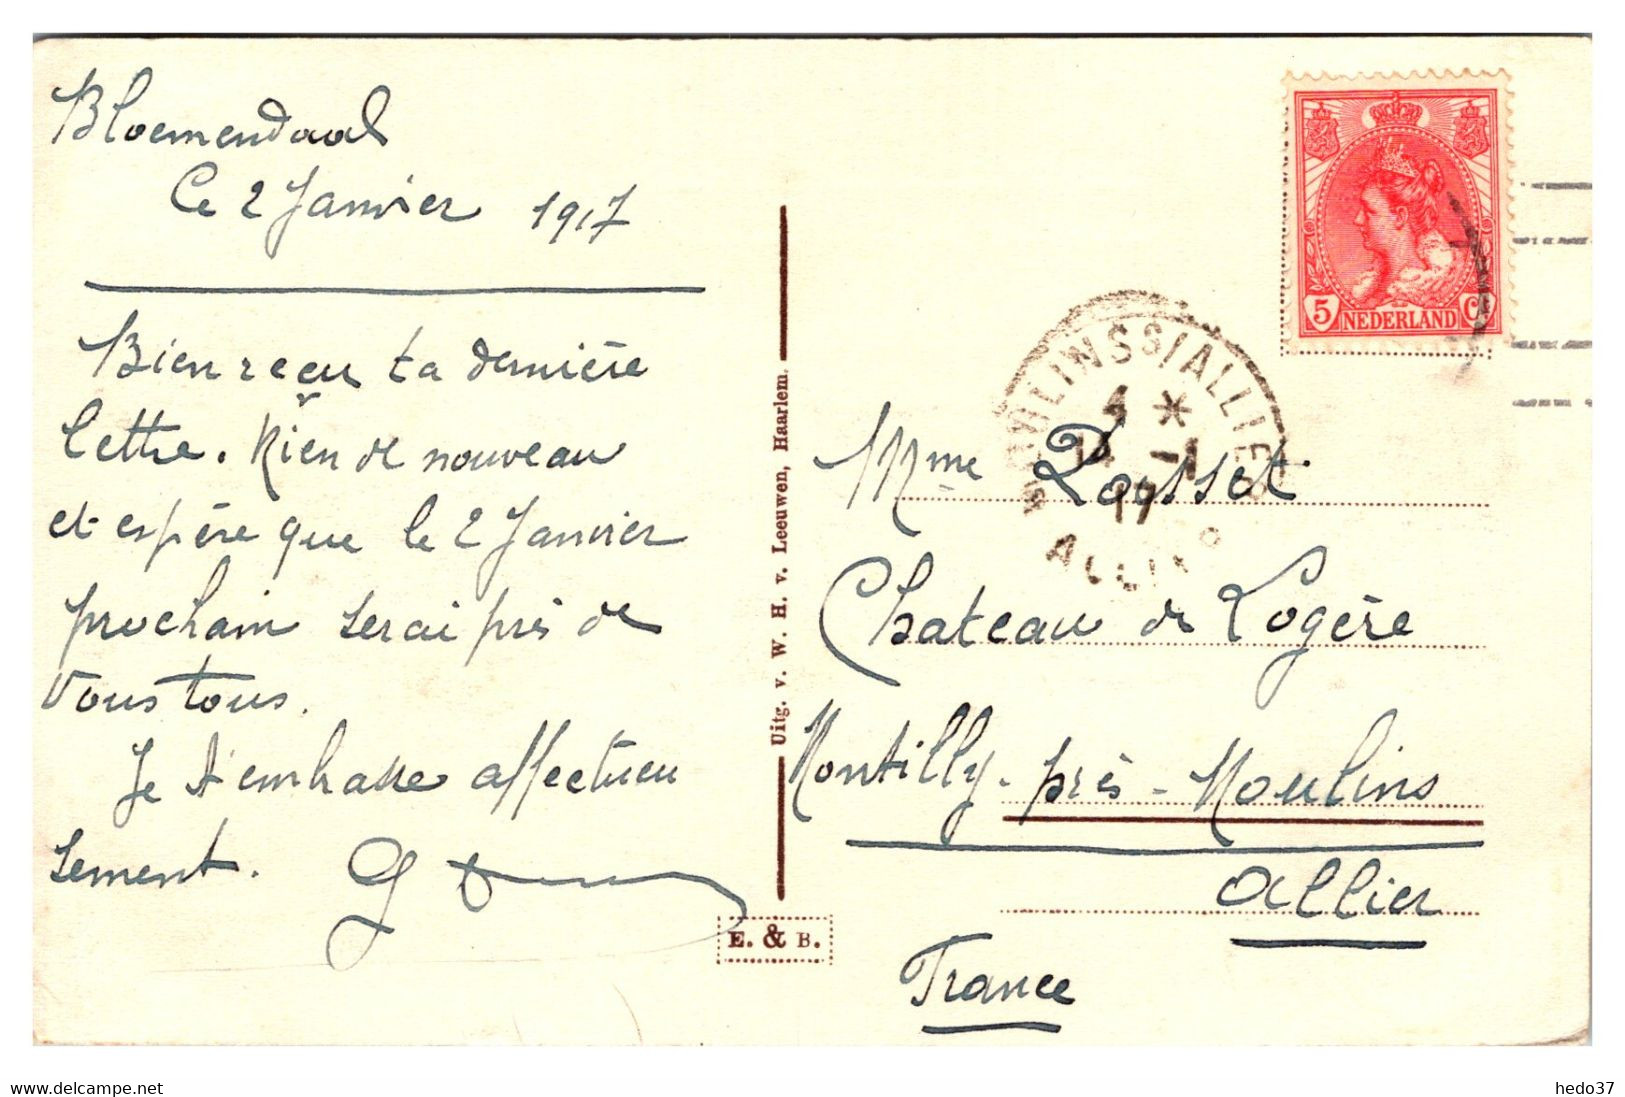 Bloemendaal
Le 2 Janvier 1917
Bien reçu ta dernière
lettre. Rien de nouveau
et espère que le 2 Janvier
prochain serai près de
vous tous.
Je t'embrasse affectueu
sement. G
Uitg. v. W. H. v. Leeuwen, Haarlem.
E. & B.
5 NEDERLAND C
ALLIER
4 *
14 -1
17
Mme Rousset
Chateau de Logère
Montilly - près - Moulins
Allier
France
www.delcampe.net
hedo37